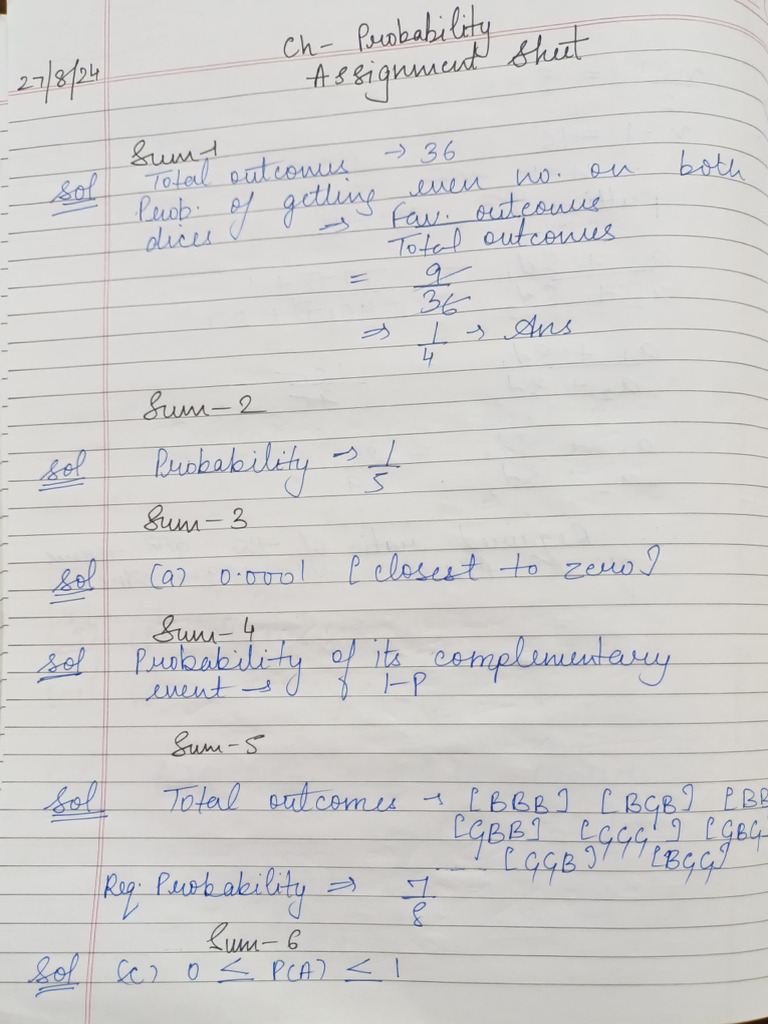 Ch- Probability
27/8/24
Assignment Sheet
Sum-1
Sol Total outcomes → 36
Prob. of getting even no. on both
dices → Fav. outcomes
Total outcomes
= 9
36
⇒ 1 → Ans
4
Sum-2
Sol Probability → 1
5
Sum-3
Sol (a) 0.0001 [closest to zero]
Sum-4
Sol Probability of its complementary
event → 1-P
Sum-5
Sol Total outcomes → [BBB] [BGB] [BB
[GBB] [GGG] [GBG
[GGB] [BGG]
Req. Probability ⇒ 7
8
Sum-6
Sol (c) 0 ≤ P(A) ≤ 1